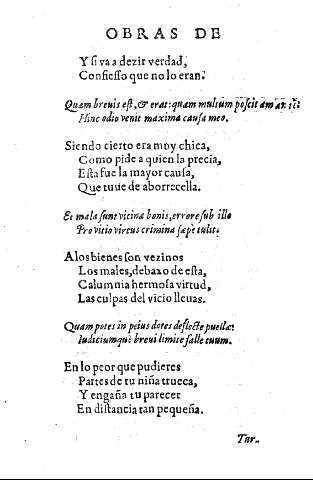 OBRAS DE
Y si va a dezir verdad,
Confiesso que no lo eran.
Quam breuis est, & erat: quam multum poscit amanti
Hinc odio venit maxima causa meo.
Siendo cierto era moy chica,
Como pide a quien la precia,
Esta fue la mayor causa,
Que tuue de aborrecella.
Et mala sunt vicina bonis, errore sub illo
Pro vicio virtus crimina sæpe tulit.
A los bienes son vezinos
Los males, debaxo de esta,
Calumnia hermosa virtud,
Las culpas del vicio lleuas.
Quam potes in peius dotes deflecte puellæ:
Iudiciumque breui limite falle tuum.
En lo peor que pudieres
Partes de tu niña trueca,
Y engaña tu parecer
En distancia tan pequeña.
Tur-